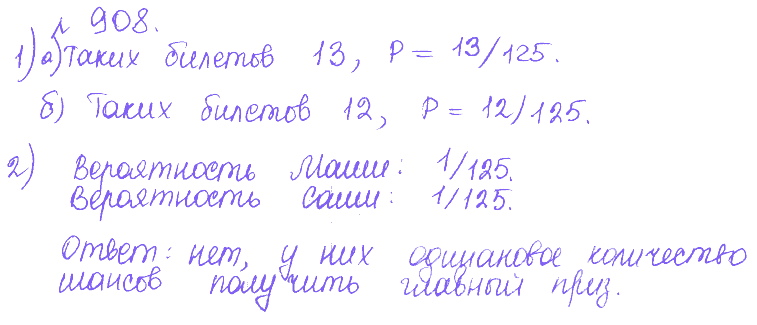 № 908.
1) а) Таких билетов 13, P = 13/125.
б) Таких билетов 12, P = 12/125.
2) Вероятность Маши: 1/125.
Вероятность Саши: 1/125.
Ответ: нет, у них одинаковое количество
шансов получить главный приз.